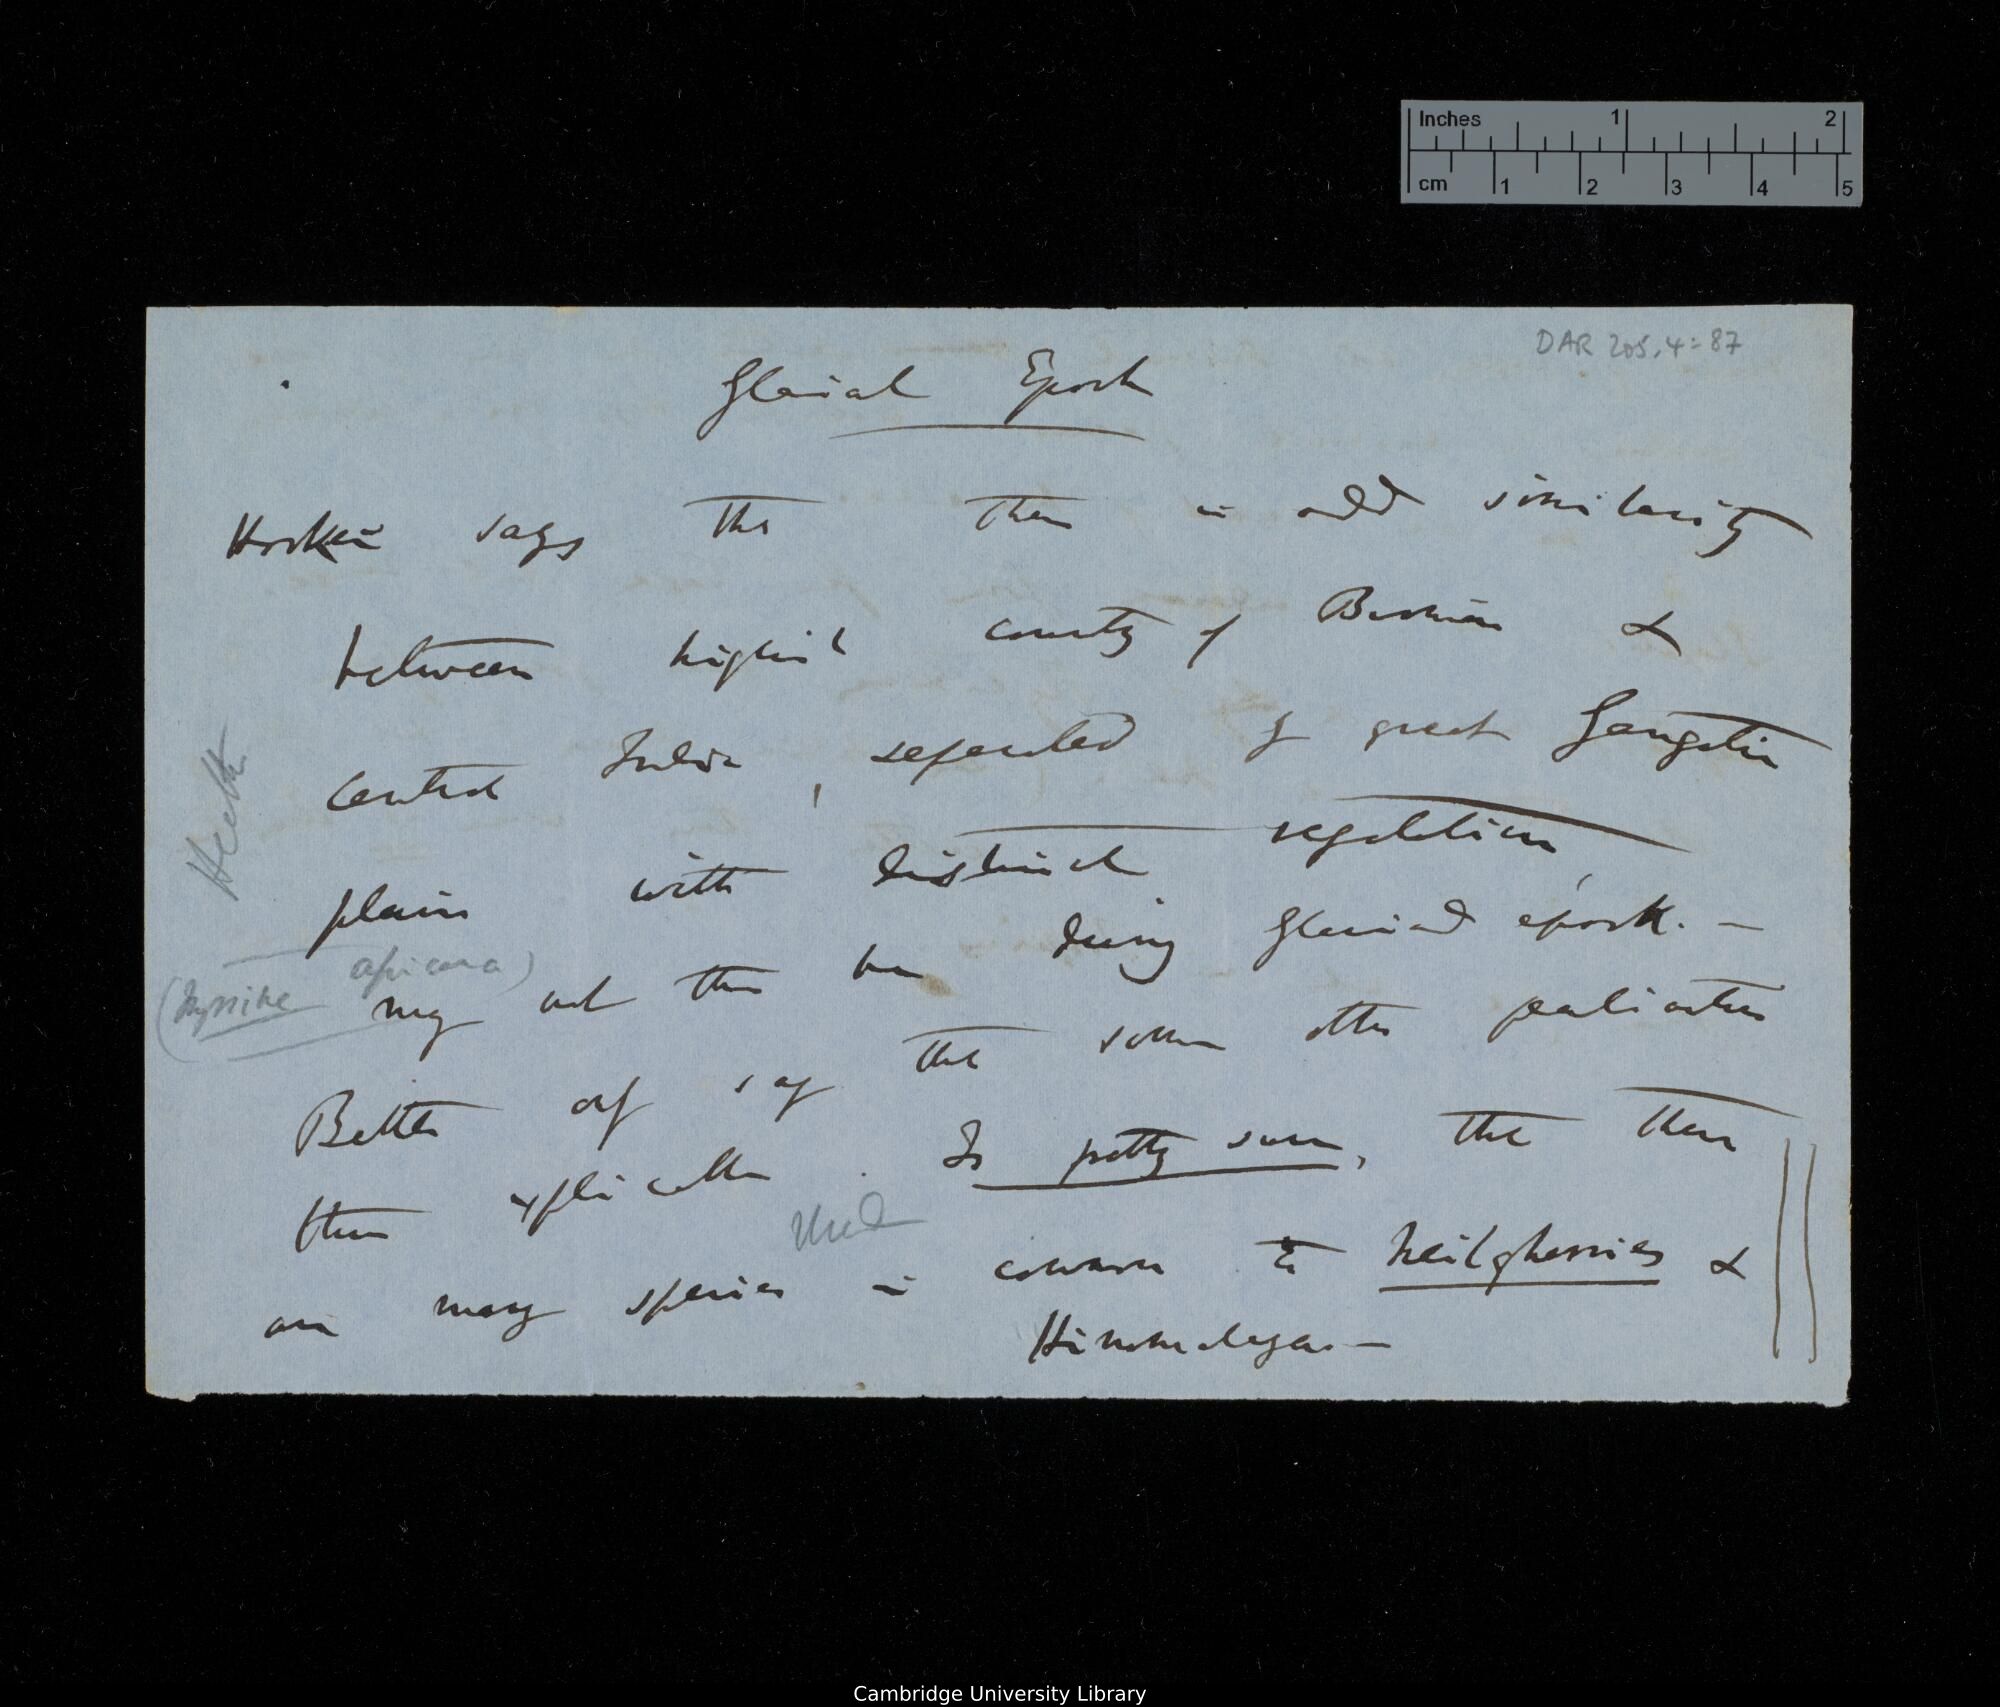 Inches 1 2
cm 1 2 3 4 5
DAR 205.4:87
Glacial Epoch
Hooker says that there is odd similarity
between highish country of Birmah &
central India, separated by great Gangetic
plain with distinct vegetation,
may not this be during glacial epoch. —
(Myrsine africana)
Heath
Better only say that some other peculiarities
thus explicable. Is pretty sure, that there
Used
are many species in common to Neilgherries &
Himmalaya. —
Cambridge University Library